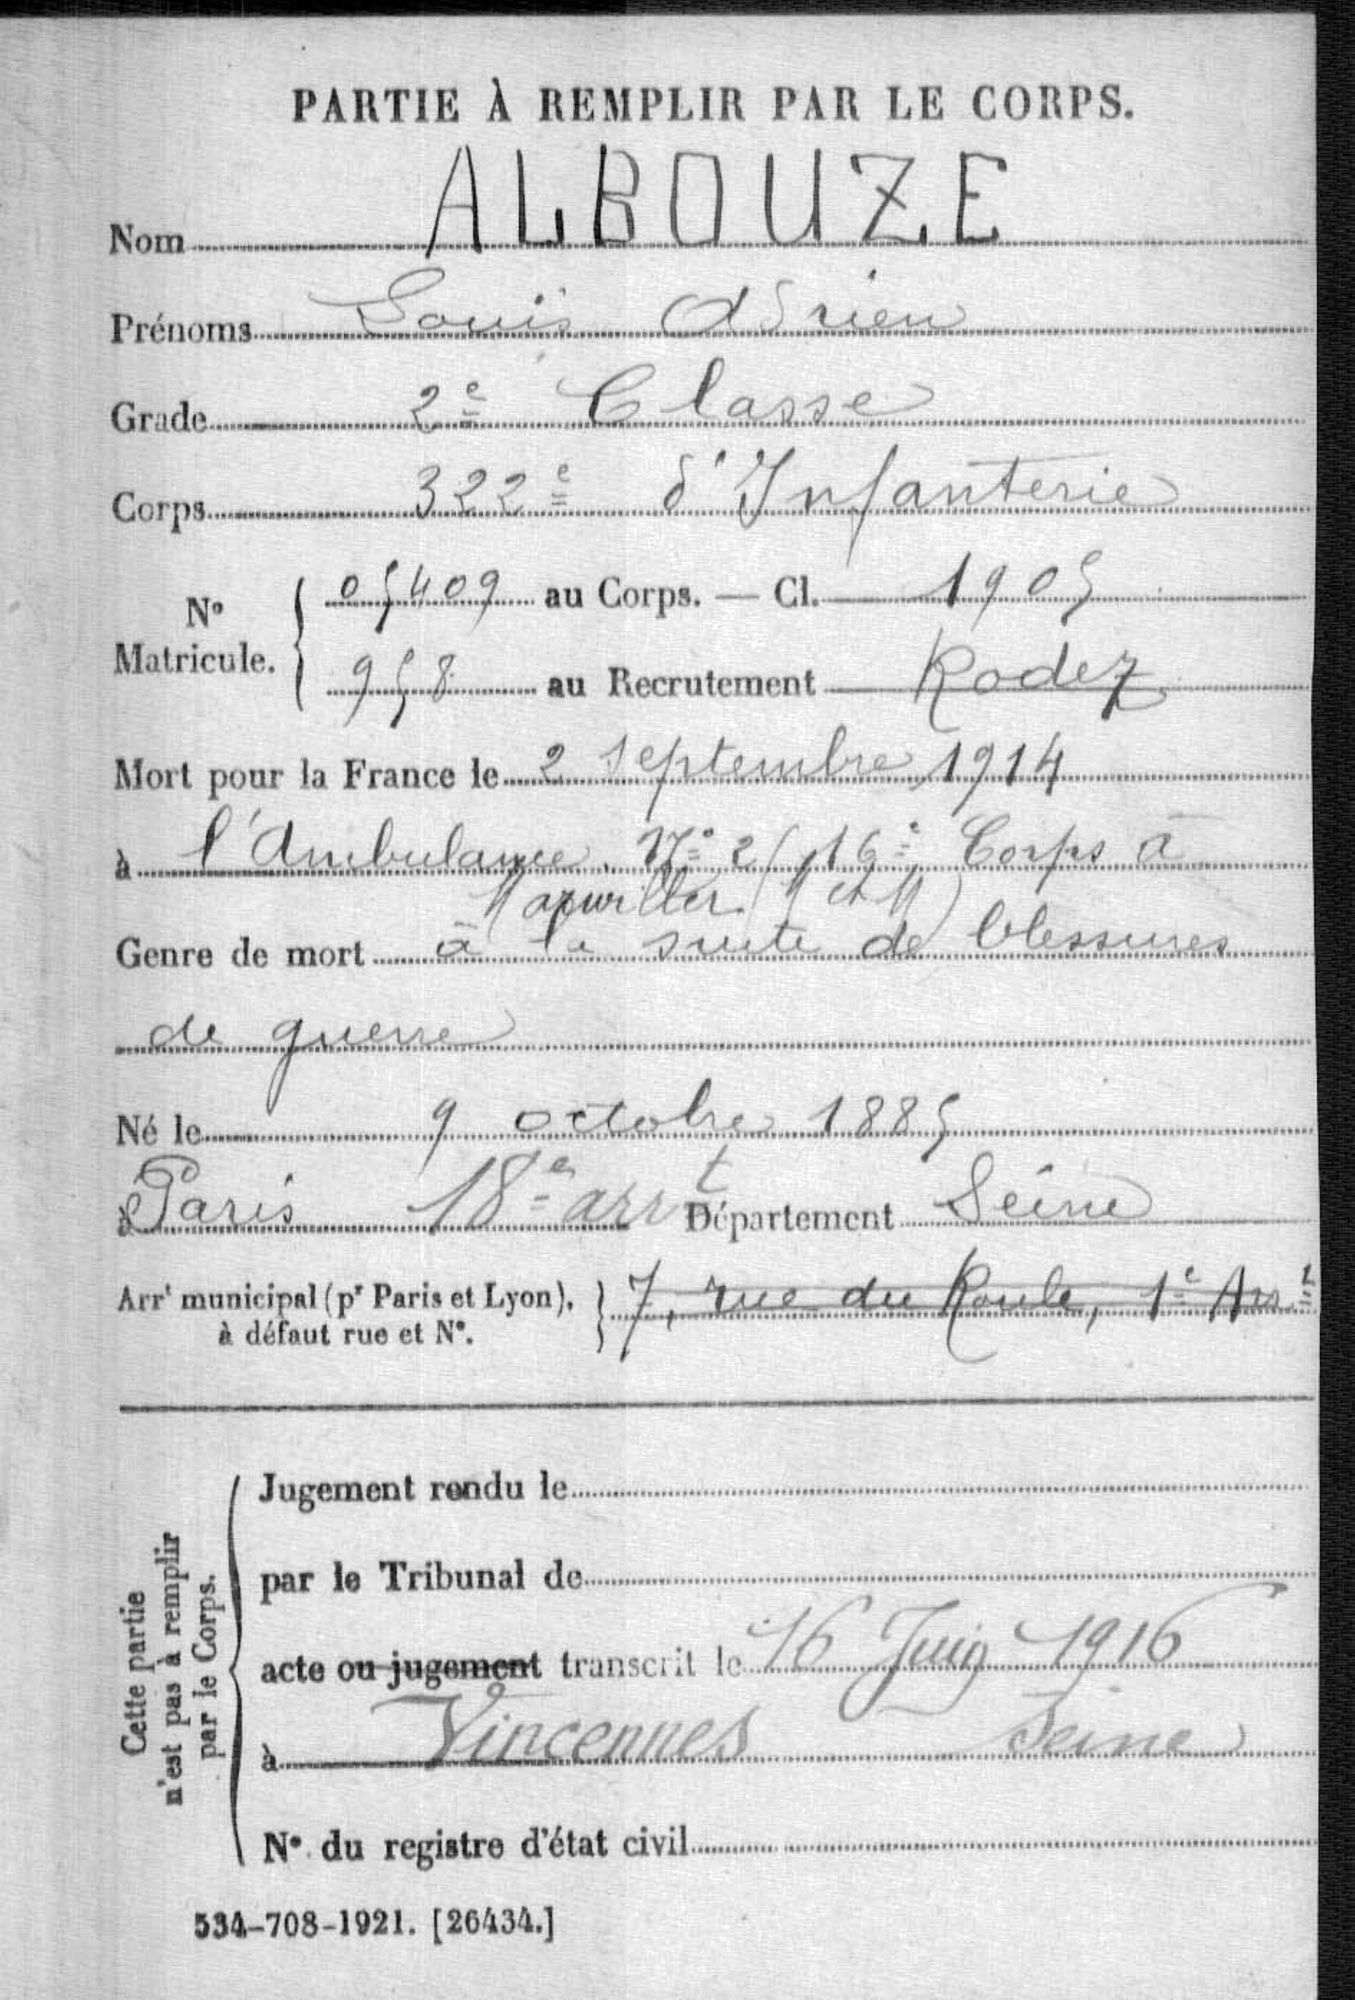 PARTIE À REMPLIR PAR LE CORPS.
Nom ALBOUZE
Prénoms Louis Adrien
Grade 2e Classe
Corps 322e d'Infanterie
No Matricule. { 05409 au Corps. — Cl. 1905
958 au Recrutement Rodez
Mort pour la France le 2 Septembre 1914
à l'Ambulance No 2/16e Corps à
(M et M)
Genre de mort à la suite de blessures
de guerre
Né le 9 octobre 1885
à Paris 18e arrt Département Seine
Arrt municipal (pr Paris et Lyon), à défaut rue et No. } 7, rue du Roule, 1e Arrt
Cette partie n'est pas à remplir par le Corps.
Jugement rendu le
par le Tribunal de
acte ou jugement transcrit le 16 Juin 1916
à Vincennes Seine
No du registre d'état civil
534-708-1921. [26434.]